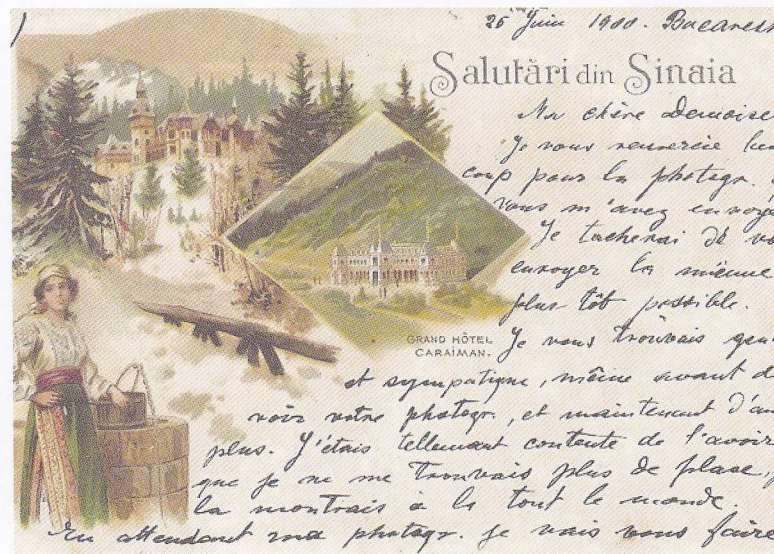 26 Juin 1900. Bucarest
Salutări din Sinaia
Ma chère Demoise
Je vous remercie beau
coup pour la photogr.
vous m'avez envoyé
Je tacherai de vo
envoyer la mienne
plus tôt possible.
GRAND HÔTEL
CARAIMAN.
Je vous trouvais gen
et sympatique, même avant d
voir votre photogr., et maintenant d'au
plus. J'étais tellement contente de l'avoir
que je ne me trouvais plus de plase,
la montrais à la tout le monde.
En attendant ma photogr. je vais vous faire